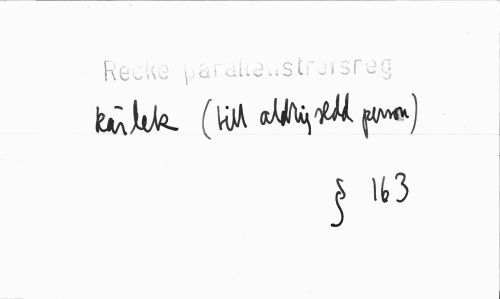 Recke parallellstrofsreg
kärlek (till aldrig sedd person)
§ 163